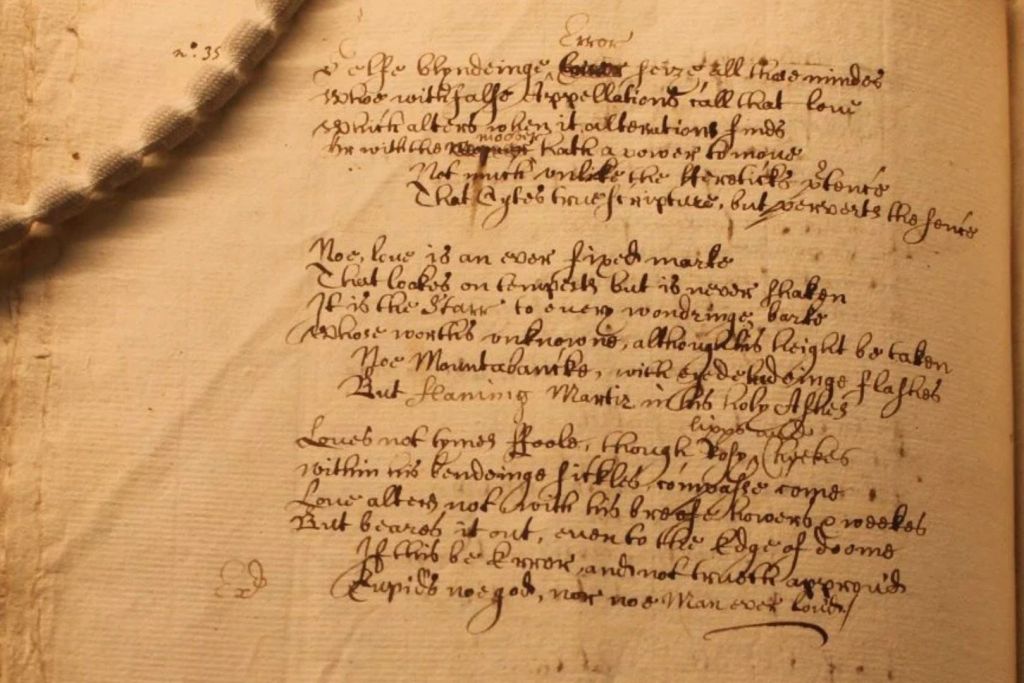 n.º 35
Error
Selfe blyndeinge seize all those mindes
Whoe with false Appellations call that love
Which alters when it alterations finds
mover
Or with the hath a power to move
Not much unlike the Heretick's ptence
That Cytes true scripture, but perverts the sence
Noe, love is an ever fixed marke
That lookes on tempests but is never shaken
It is the Starr to every wondringe barke
Whose worths unknowne, although his height be taken
Noe Mountebancke, with eye deludeinge flashes
But flameing Martir in his holy Ashes
lipps and
Loves not tymes Foole, though Rosy Cheekes
within his bendeinge sickles compasse come
Love alters not with his breefe howers & weekes
But beares it out, even to the Edge of doome
If this be Error, and not truth approv'd
Cupids noe god, nor noe Man ever lov'd